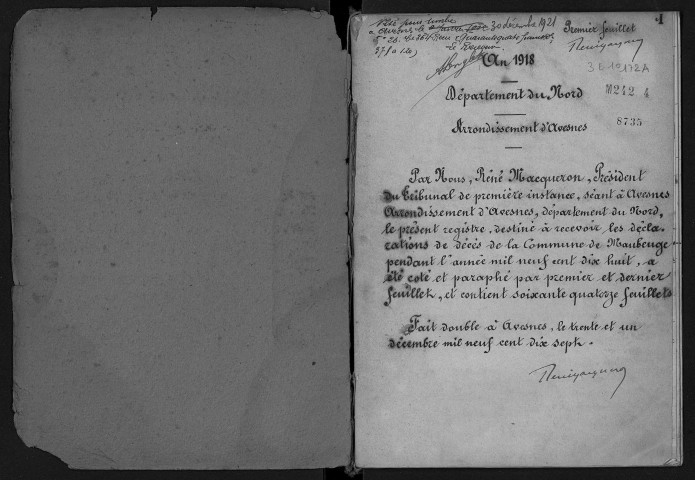 Premier feuillet
1
30 décembre 1921
An 1918
3 E 10172A
Département du Nord
M242 4
Arrondissement d'Avesnes
8735
Par Nous, René Macqueron, Président
du Tribunal de première instance, séant à Avesnes
Arrondissement d'Avesnes, département du Nord,
le présent registre, destiné à recevoir les décla-
rations de décès de la Commune de Maubeuge
pendant l'année mil neuf cent dix huit, a
été coté et paraphé par premier et dernier
feuillet, et contient soixante quatorze feuillets
Fait double à Avesnes, le trente et un
décembre mil neuf cent dix sept.